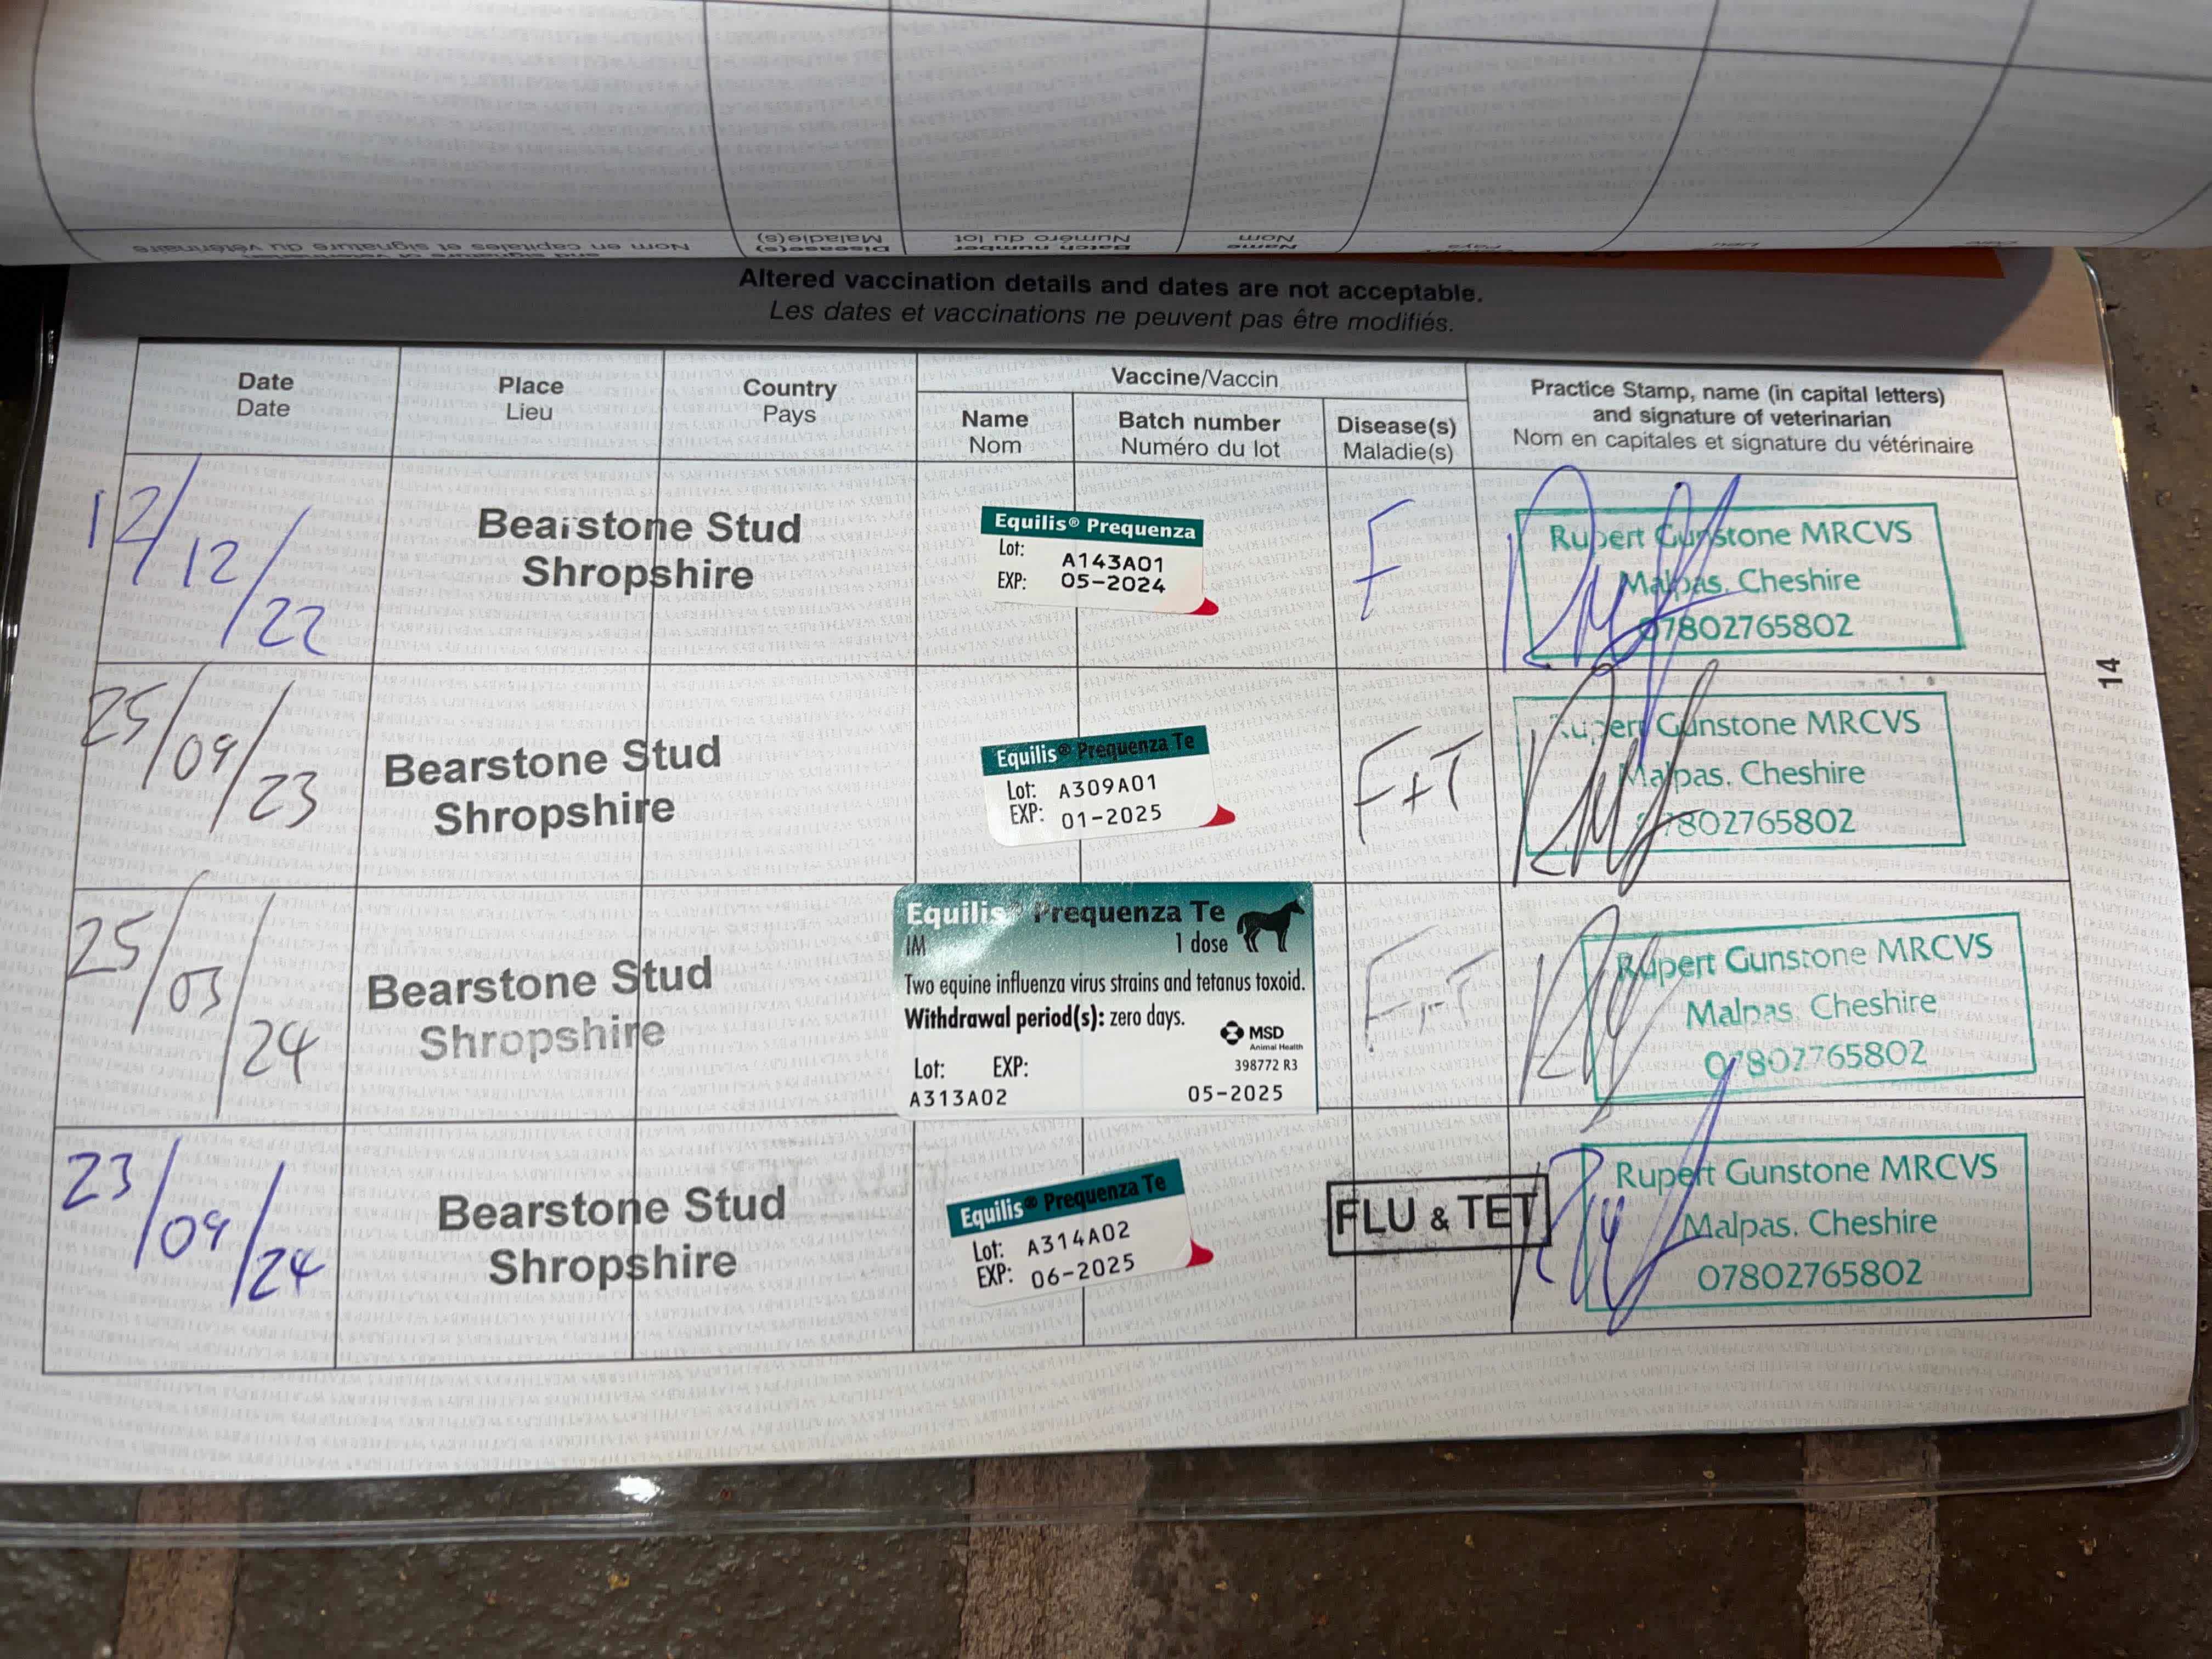 Nom en capitales et signature du vétérinaire
Disease(s)
Maladie(s)
Batch number
Numéro du lot
Name
Nom
Altered vaccination details and dates are not acceptable.
Les dates et vaccinations ne peuvent pas être modifiés.
Date
Date
Place
Lieu
Country
Pays
Vaccine/Vaccin
Name
Nom
Batch number
Numéro du lot
Disease(s)
Maladie(s)
Practice Stamp, name (in capital letters)
and signature of veterinarian
Nom en capitales et signature du vétérinaire
12/12/22
Bearstone Stud
Shropshire
Equilis® Prequenza
Lot: A143A01
EXP: 05-2024
F
Rupert Gunstone MRCVS
Malpas. Cheshire
07802765802
25/09/23
Bearstone Stud
Shropshire
Equilis® Prequenza Te
Lot: A309A01
EXP: 01-2025
F+T
Rupert Gunstone MRCVS
Malpas. Cheshire
07802765802
25/03/24
Bearstone Stud
Shropshire
Equilis® Prequenza Te
IM 1 dose
Two equine influenza virus strains and tetanus toxoid.
Withdrawal period(s): zero days.
MSD
Animal Health
Lot: EXP: 398772 R3
A313A02 05-2025
F+T
Rupert Gunstone MRCVS
Malpas. Cheshire
07802765802
23/09/24
Bearstone Stud
Shropshire
Equilis® Prequenza Te
Lot: A314A02
EXP: 06-2025
FLU & TET
Rupert Gunstone MRCVS
Malpas. Cheshire
07802765802
14